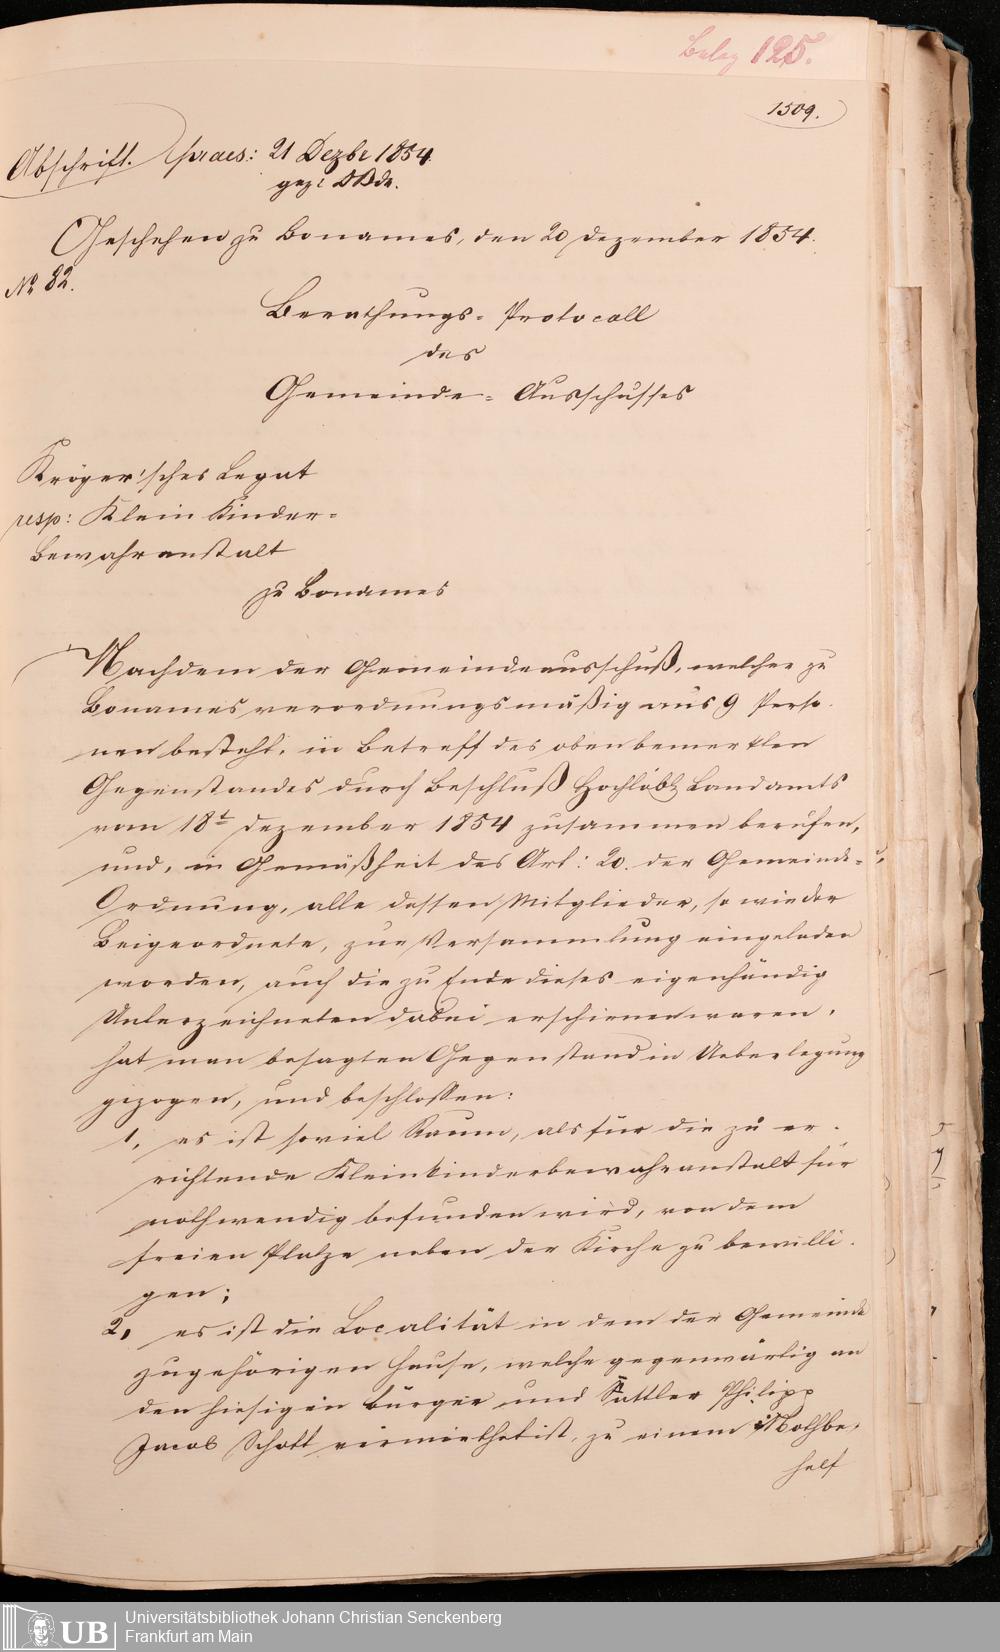 Beleg 125.
1509.
Abschrift. praes: 21 Dezbr 1854.
gez:
Geschehen zu Bonames, den 20 Dezember 1854.
No 82.
Berathungs- Protocoll
des
Gemeinde- Ausschusses
Kröger'sches Legat
resp: Klein Kinder-
bewahranstalt
zu Bonames
Nachdem der Gemeindeausschuß, welcher zu
Bonames verordnungsmäßig aus 9 Perso-
nen besteht, in Betreff des obenbemerkten
Gegenstandes durch Beschluß Hochlöbl Landamts
vom 18t Dezember 1854 zusammen berufen,
und, in Gemäßheit des Art: 20. der Gemeinde-
Ordnung, alle dessen Mitglieder, so wie der
Beigeordnete, zur Versammlung eingeladen
worden, auch die zu Ende dieses eigenhändig
Unterzeichneten dabei erschienen waren,
hat man besagten Gegenstand in Ueberlegung
gezogen, und beschlossen:
1, es ist soviel Raum, als für die zu er-
richtende Kleinkinderbewahranstalt für
nothwendig befunden wird, von dem
freien Platze neben der Kirche zu bewilli-
gen;
2, es ist die Localität in dem der Gemeinde
zugehörigen Hause, welche gegenwärtig an
den hiesigen Bürger und Sattler Philipp
Jacob Schott vermiethet ist, zu einem Nothbe-
helf
UB
Universitätsbibliothek Johann Christian Senckenberg
Frankfurt am Main